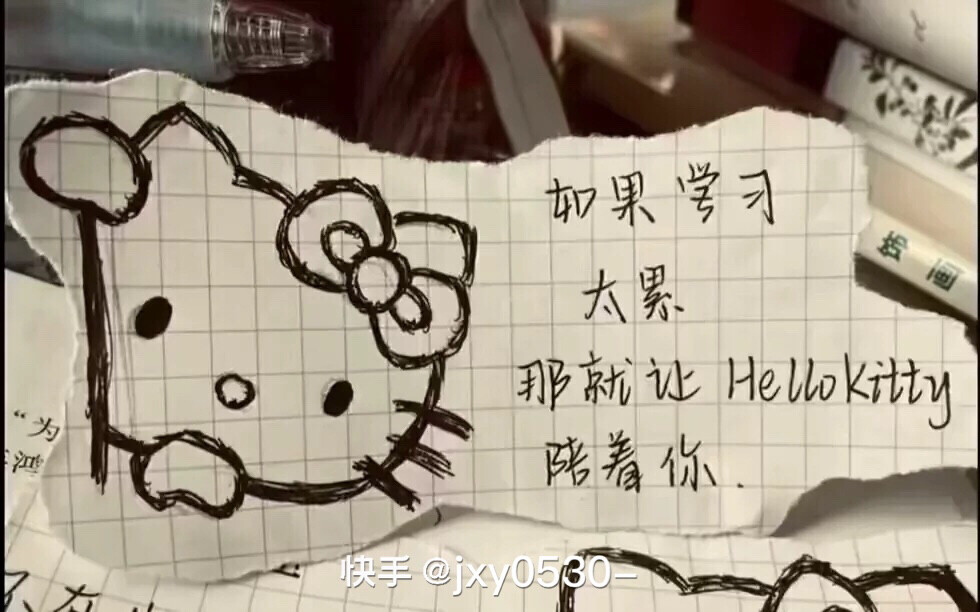 如果学习
太累
那就让 HelloKitty
陪着你.
饰画
“为
快手 @jxy0530-